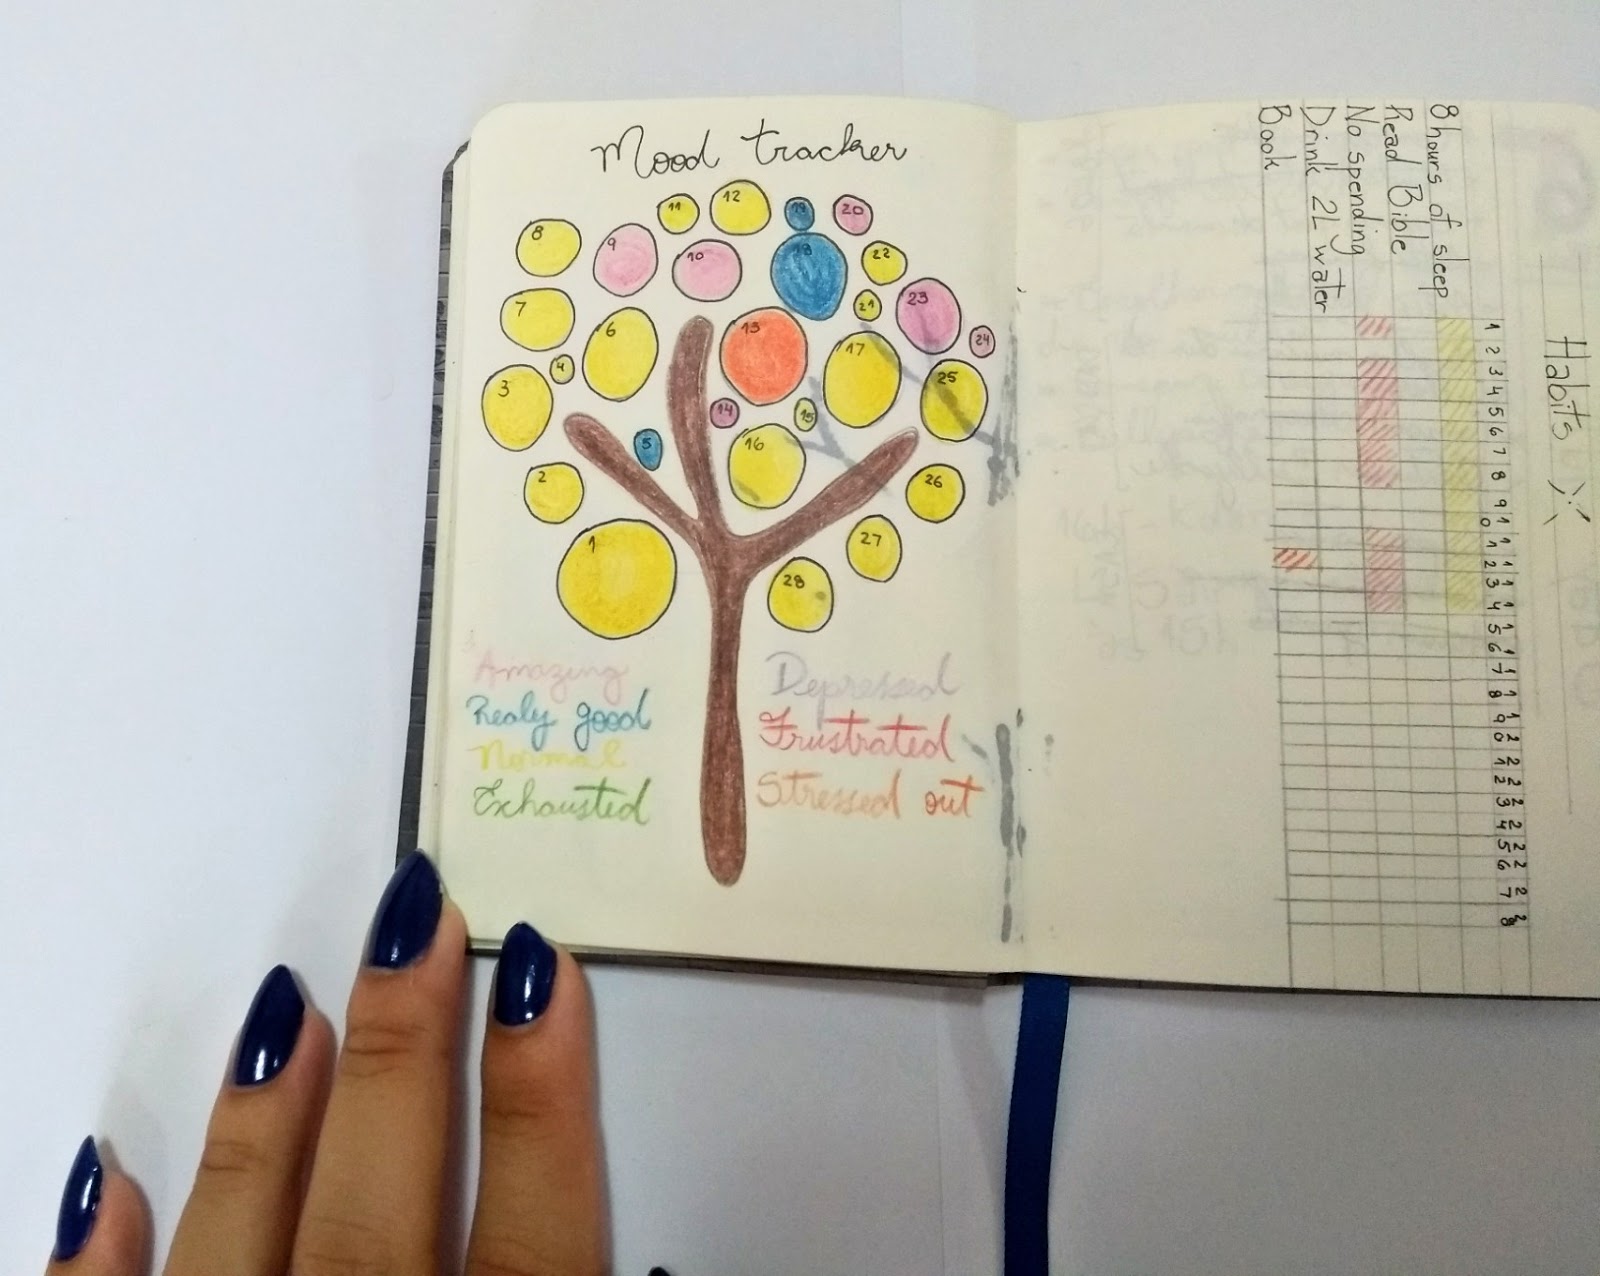 Mood tracker
12
11
19
20
8
9
10
18
22
7
6
13
21
23
17
24
4
3
25
14
15
5
16
2
26
1
27
28
Amazing
Realy good
Normal
Exhausted
Depressed
Frustrated
Stressed out
Habits
1 2 3 4 5 6 7 8 9 10 11 12 13 14 15 16 17 18 19 20 21 22 23 24 25 26 27 28
8 hours of sleep
Read Bible
No spending
Drink 2L water
Book